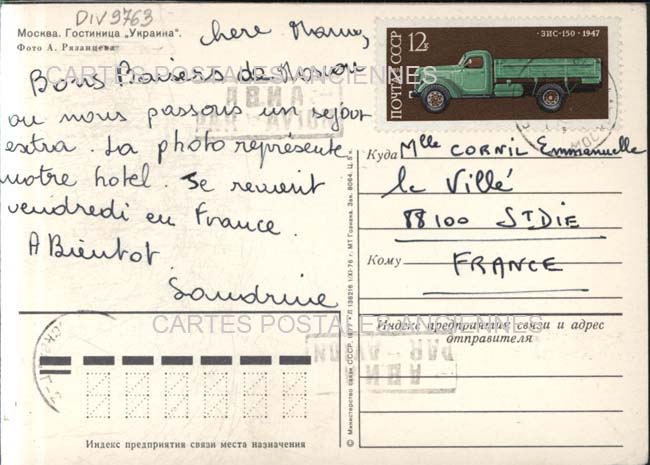 DIV9763
Москва. Гостиница „Украина“.
Фото А. Рязанцева
chere Manu,
Bons Baisers de Moscou
ou nous passons un sejour
extra. La photo représente
notre hotel. Je revient
vendredi en France.
A Bientot
Sandrine
CARTES POSTALES ANCIENNES
АВИА
PAR AVION
ПОЧТА СССР
12к
·ЗИС-150·1947
Куда Mlle CORNIL Emmanuelle
le Villé
88100 ST DIE
Кому FRANCE
CARTES POSTALES ANCIENNES
Индекс предприятия связи и адрес
отправителя
АВИА
PAR AVION
Индекс предприятия связи места назначения
© Министерство связи СССР, 197
Л 136216 1/XI-76 г. МТ Гознака. Зак. 8064. Ц. 5 к.